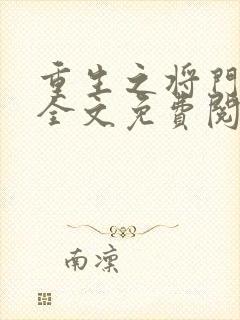 重生之将门
全文免費閱
南凜